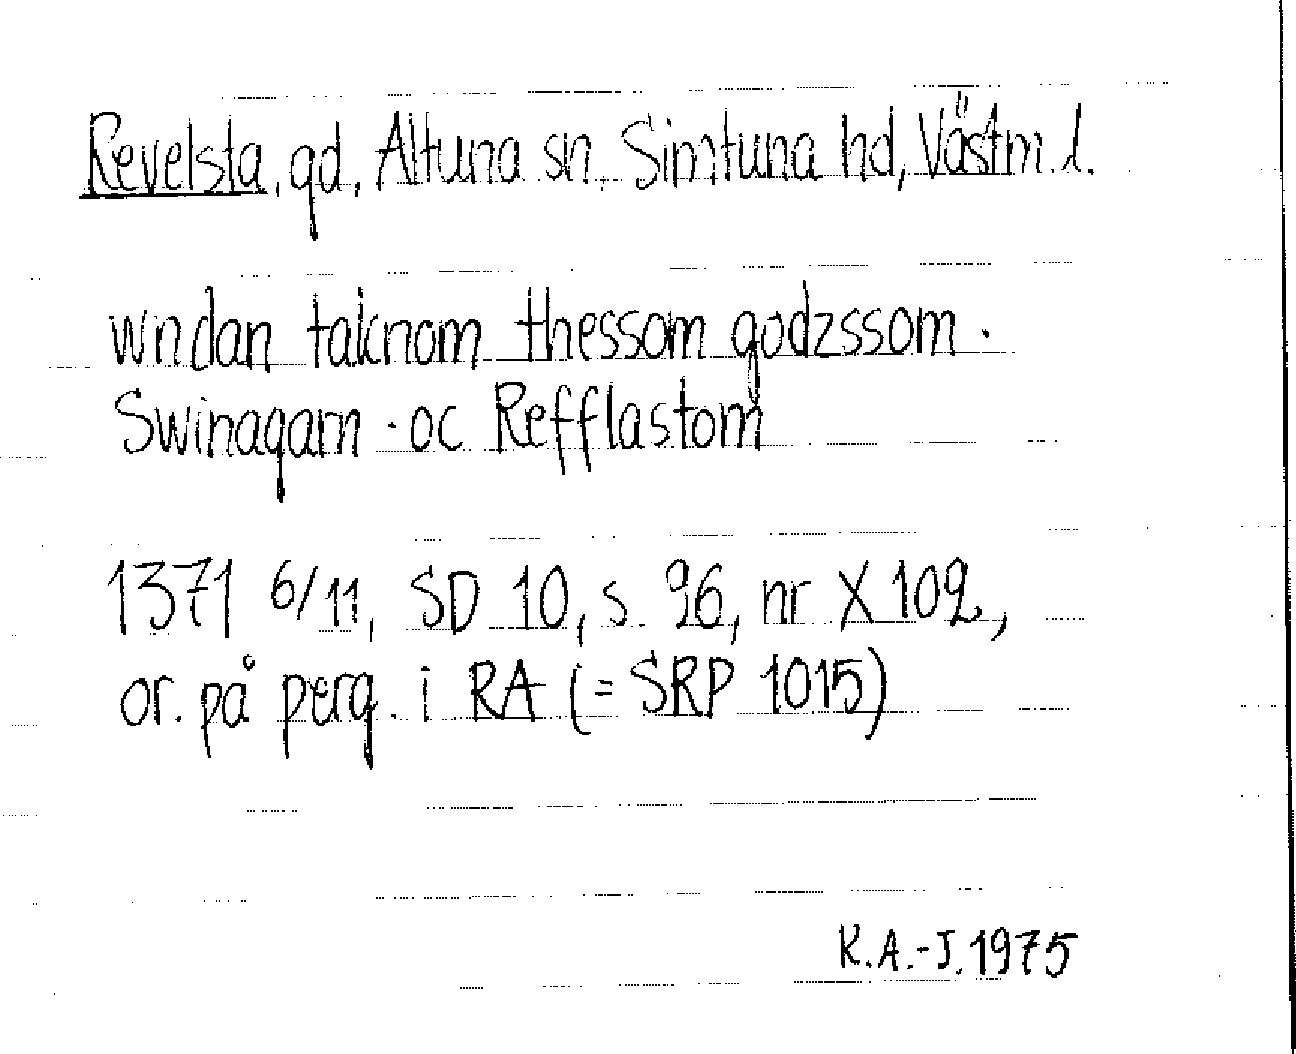 Revelsta, gd, Altuna sn, Simtuna hd, Västm. l.
wndan taknom thessom godzssom ·
Swinagarn · oc Refflastom
1371 6/11, SD 10, s. 96, nr X 102,
or. på perg. i RA (= SRP 1015)
K.A.-J. 1975